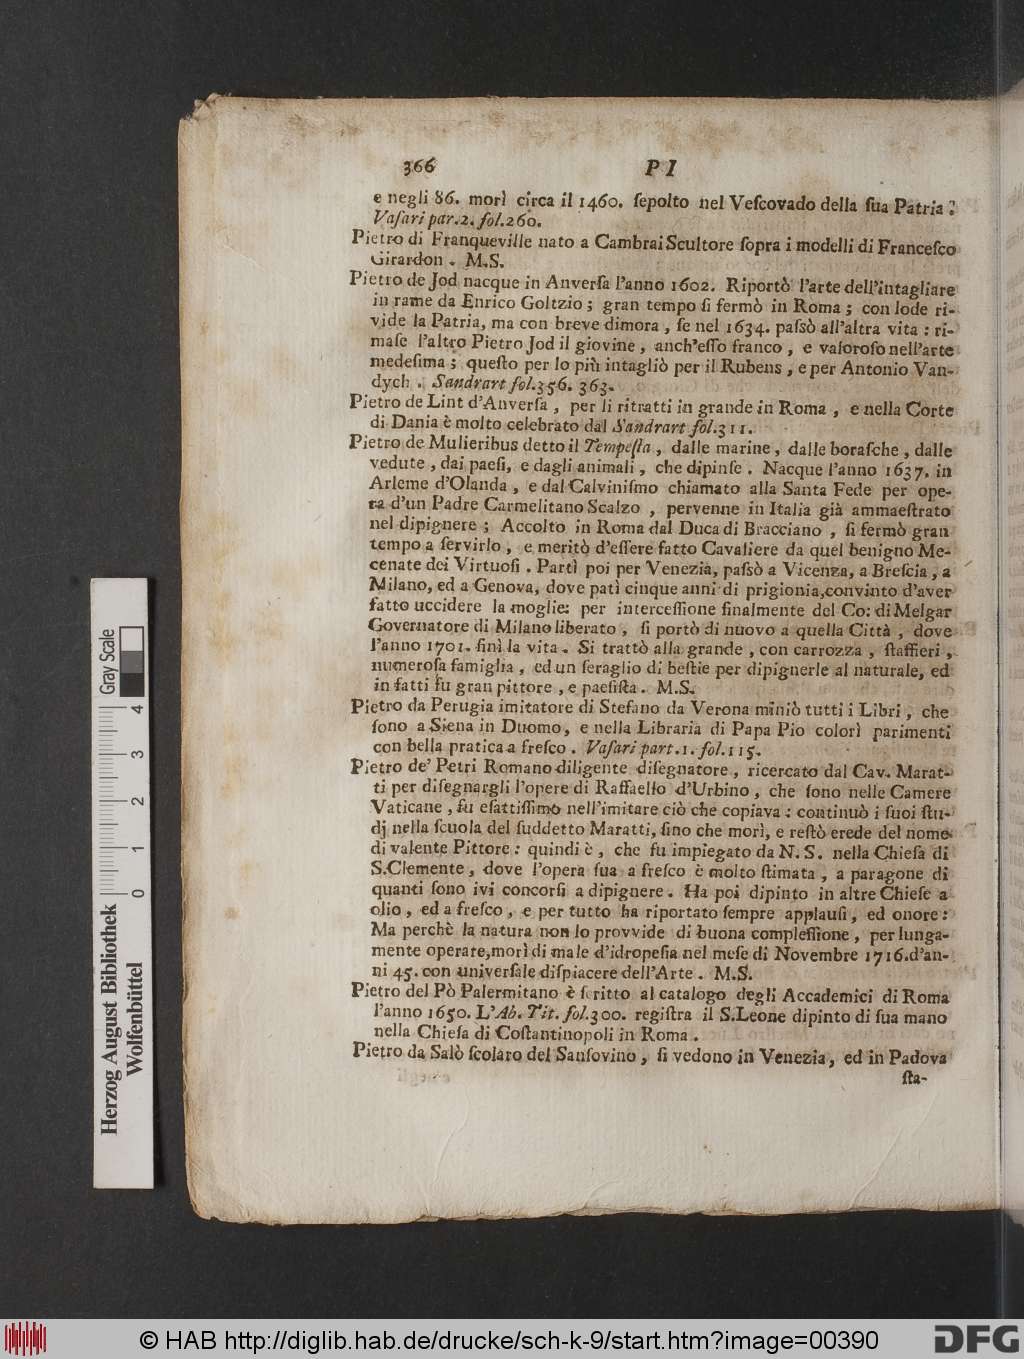 366 P I
e negli 86. morì circa il 1460. ſepolto nel Veſcovado della ſua Patria.
Vaſari par.2. fol.260.
Pietro di Franqueville nato a Cambrai Scultore ſopra i modelli di Franceſco
Girardon. M.S.
Pietro de Jod nacque in Anverſa l'anno 1602. Riportò l'arte dell'intagliare
in rame da Enrico Goltzio; gran tempo ſi fermò in Roma; con lode ri-
vide la Patria, ma con breve dimora, ſe nel 1634. paſsò all'altra vita: ri-
maſe l'altro Pietro Jod il giovine, anch'eſſo franco, e valoroſo nell'arte
medeſima; queſto per lo più intagliò per il Rubens, e per Antonio Van-
dych. Sandrart fol.356. 363.
Pietro de Lint d'Anverſa, per li ritratti in grande in Roma, e nella Corte
di Dania è molto celebrato dal Sandrart fol.311.
Pietro de Mulieribus detto il Tempeſta, dalle marine, dalle boraſche, dalle
vedute, dai paeſi, e dagli animali, che dipinſe. Nacque l'anno 1637. in
Arleme d'Olanda, e dal Calviniſmo chiamato alla Santa Fede per ope-
ra d'un Padre Carmelitano Scalzo, pervenne in Italia già ammaeſtrato
nel dipignere; Accolto in Roma dal Duca di Bracciano, ſi fermò gran
tempo a ſervirlo, e meritò d'eſſere fatto Cavaliere da quel benigno Me-
cenate dei Virtuoſi. Partì poi per Venezia, paſsò a Vicenza, a Breſcia, a
Milano, ed a Genova, dove patì cinque anni di prigionia, convinto d'aver
fatto uccidere la moglie: per interceſſione finalmente del Co: di Melgar
Governatore di Milano liberato, ſi portò di nuovo a quella Città, dove
l'anno 1701. finì la vita. Si trattò alla grande, con carrozza, ſtaffieri,
numeroſa famiglia, ed un ſeraglio di beſtie per dipignerle al naturale, ed
in fatti fu gran pittore, e paeſiſta. M.S.
Pietro da Perugia imitatore di Stefano da Verona miniò tutti i Libri, che
ſono a Siena in Duomo, e nella Libraria di Papa Pio colorì parimenti
con bella pratica a freſco. Vaſari part.1. fol.115.
Pietro de' Petri Romano diligente diſegnatore, ricercato dal Cav. Marat-
ti per diſegnargli l'opere di Raffaello d'Urbino, che ſono nelle Camere
Vaticane, fu eſattiſſimo nell'imitare ciò che copiava: continuò i ſuoi ſtu-
dj nella ſcuola del ſuddetto Maratti, ſino che morì, e reſtò erede del nome
di valente Pittore: quindi è, che fu impiegato da N. S. nella Chieſa di
S.Clemente, dove l'opera ſua a freſco è molto ſtimata, a paragone di
quanti ſono ivi concorſi a dipignere. Ha poi dipinto in altre Chieſe a
olio, ed a freſco, e per tutto ha riportato ſempre applauſi, ed onore:
Ma perchè la natura non lo provvide di buona compleſſione, per lunga-
mente operare, morì di male d'idropeſia nel meſe di Novembre 1716. d'an-
ni 45. con univerſale diſpiacere dell'Arte. M.S.
Pietro del Pò Palermitano è ſcritto al catalogo degli Accademici di Roma
l'anno 1650. L'Ab. Tit. fol.300. regiſtra il S.Leone dipinto di ſua mano
nella Chieſa di Coſtantinopoli in Roma.
Pietro da Salò ſcolaro del Sanſovino, ſi vedono in Venezia, ed in Padova
ſta-
Herzog August Bibliothek
Wolfenbüttel
0 1 2 3 4
Gray Scale
© HAB http://diglib.hab.de/drucke/sch-k-9/start.htm?image=00390
DFG